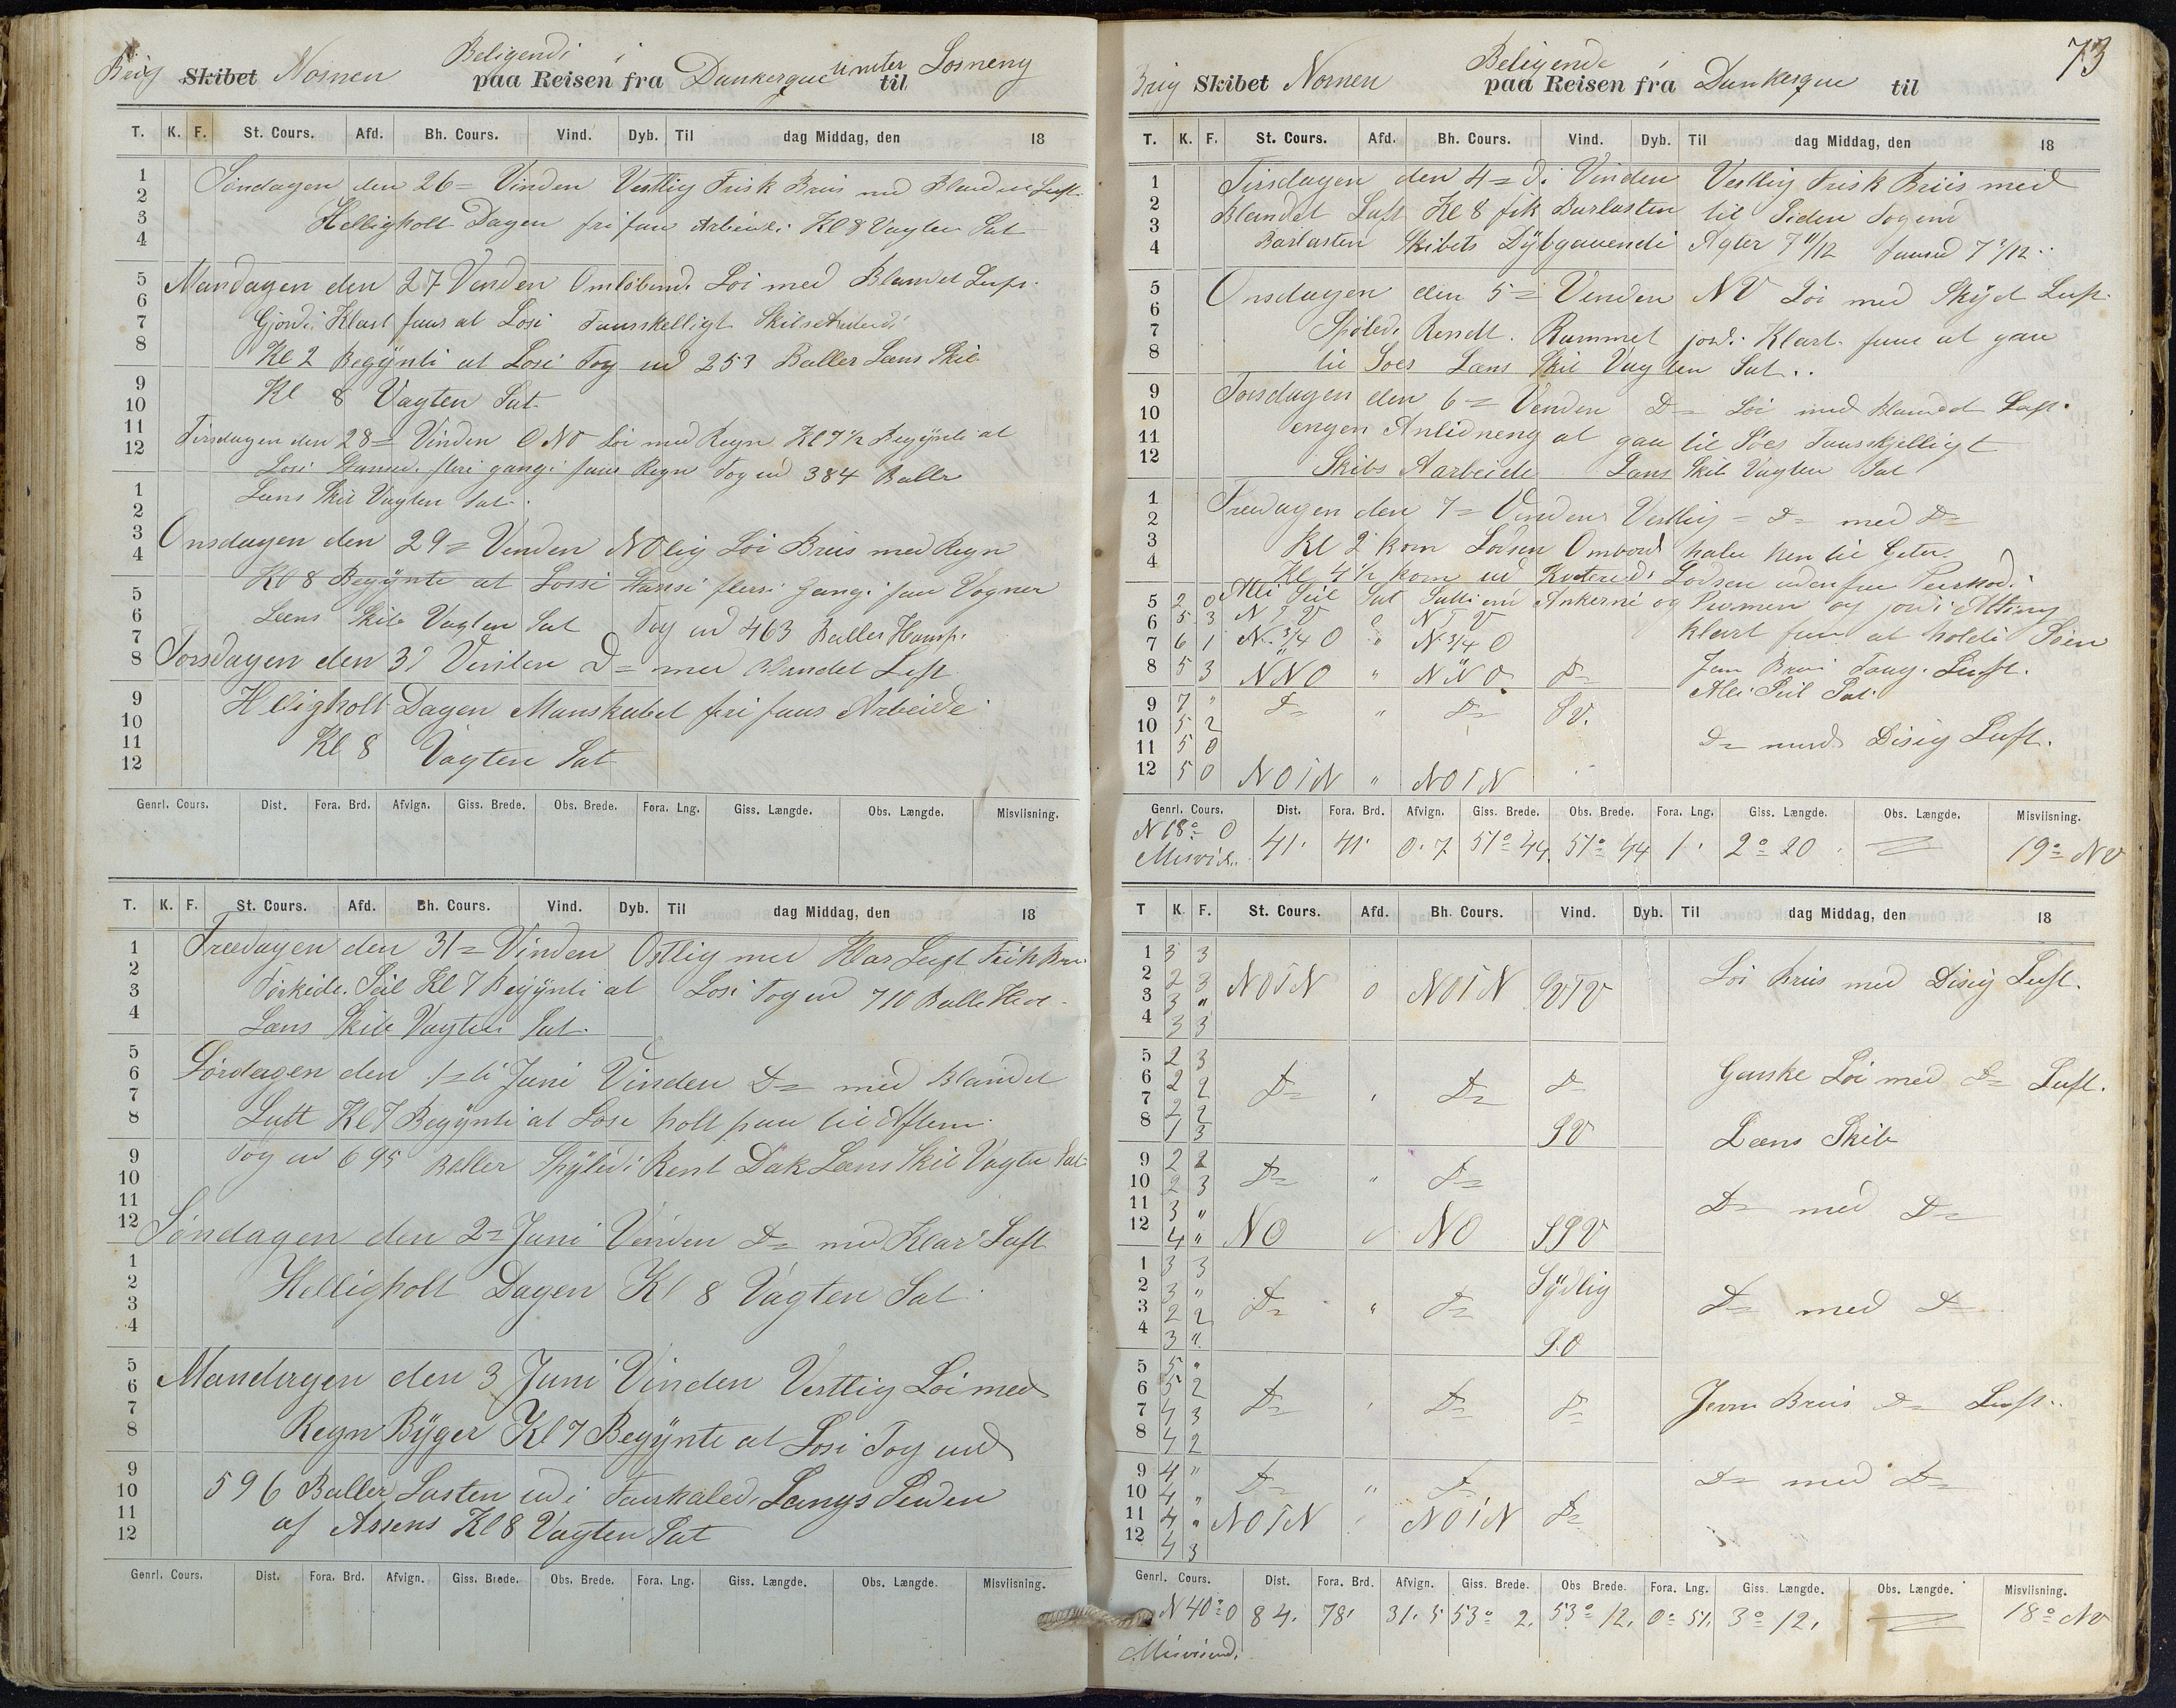 Brig Skibet Nornen Beligendi i
paa Reisen fra Dunkerque unter til Losneng
T. K. F. St. Cours. Afd. Bh. Cours. Vind. Dyb. Til dag Middag, den 18
Søndagen den 26= Vinden Vestlig Frisk Briis med Blandet Luft.
Helligholt Dagen fri faur Arbeide. Kl 8 Vagten Sat
Mandagen den 27 Vinden Omløbend. Løi med Blandet Luft.
Gjordi Klart faur at Losi Faurskelligt Skibsarbeide
Kl 2 Begÿnti at Losi Tog ud 253 Baller Læns Skib
Kl 8 Vagten Sat
Tirsdagen den 28= Vinden ONO Løi med Regn Kl 7½ Begÿnti at
Losi Stansed. fleri gangi faur Regn Tog ud 384 Baller
Læns Skib Vagten Sat.
Onsdagen den 29= Vinden NOlig Løi Briis med Regn
Kl 8 Begÿnte at Lossi Stansi fleri Gangi faur Vogner
Læns Skib Vagten Sat Tog ud 463 Baller Hamp.
Torsdagen den 30 Vinden D= med Blandet Luft
Helligholt Dagen Manskabet fri faur Arbeide
Kl 8 Vagten Sat
Genrl. Cours. Dist. Fora. Brd. Afvign. Giss. Brede. Obs. Brede. Fora. Lng. Giss. Længde. Obs. Længde. Misviisning.
T. K. F. St. Cours. Afd. Bh. Cours. Vind. Dyb. Til dag Middag, den 18
Freedagen den 31= Vinden Ostlig med Klar Luft Frisk
Tørkede Seil Kl 7 Begÿnti at Losi Tog ud 710 Balle
Læns Skib Vagten Sat.
Lørdagen den 1=ti Juni Vinden D= med Blandet
Luft Kl 7 Begÿnti at Losi holt paa til Aften.
Tog ud 695 Baller Spÿledi Rent Dæk Læns Skib Vagten Sat
Søndagen den 2= Juni Vinden D= med Klar Luft
Helligholt Dagen Kl 8 Vagten Sat
Mandagen den 3 Juni Vinden Vestlig Løi med
Regn Bÿger Kl 7 Begÿnte at Losi Tog ud
596 Baller Lasten ud i Faurhaled. Langs Siden
af Assens Kl 8 Vagten Sat
Genrl. Cours. Dist. Fora. Brd. Afvign. Giss. Brede. Obs. Brede. Fora. Lng. Giss. Længde. Obs. Længde. Misviisning.
73
Brig Skibet Nornen Beligende i
paa Reisen fra Dunkerque til
T. K. F. St. Cours. Afd. Bh. Cours. Vind. Dyb. Til dag Middag, den 18
Tirsdagen den 4=di Vinden Vestlig Frisk Briis med
Blandet Luft Kl 8 fik Barlasten til Siden Tog ind
Barlasten Skibets Dÿbgauendi Agter 7 11/12 faurud 7 7/12
Onsdagen den 5= Vinden NV Løi med Skÿet Luft.
Spøledi Rendt. Rummet jord. Klart faur at gaa
til Soes Læns Skib Vagten Sat..
Torsdagen den 6= Vinden D= Løi med Blandet Luft.
engen Anlidneng at gaa til Søes Faurskjelligt
Skibs Aarbeide Læns Skib Vagten Sat
Freedagen den 7= Vinden Vestlig = D= med D=
Kl 2 kom Lodsen Ombord
Kl 4½ kom ud
5 2 0 Alli Seil Sat Ankerni og
6 5 3 N T V " N T V klart faur at holdi Søen
7 6 1 N. 3/4 O " N. 3/4 O
8 5 3 NNO " NNO D= Jæn Briis Taag. Luft.
9 7 " D= " D= SV. Alli Seil Sat.
10 5 2
11 5 0 D= med Disig Luft.
12 5 0 NOTN " NOTN
Genrl. Cours. Dist. Fora. Brd. Afvign. Giss. Brede. Obs. Brede. Fora. Lng. Giss. Længde. Obs. Længde. Misviisning.
N 18° O 41. 41. 0.7 51° 44. 51° 44 1. 2° 20. 19° NV
T K. F. St. Cours. Afd. Bh. Cours. Vind. Dyb. Til dag Middag, den 18
1 3 3
2 2 3 NOTN 0 NOTN SVTV Løi Briis med Disig Luft.
3 3 "
4 3 3
5 2 3
6 2 2 D= " D= D= Ganske Løi med D= Luft.
7 2 2
8 1 3 SV Læns Skib
9 2 2
10 2 3 D= " D=
11 3 " D= med D=
12 4 " NO " NO SSV
1 3 3 Sÿdlig
2 3 "
3 2 2 D= " D= D= med D=
4 3 " S.O
5 5 "
6 5 2 D= " D= D= Jevn Briis D= Luft..
7 4 3
8 4 2
9 4 " D= " D= D= med D=
10 4 "
11 4 " NOTN " NOTN D=
12 4 3
Genrl. Cours. Dist. Fora. Brd. Afvign. Giss. Brede. Obs Brede. Fora. Lng. Giss. Længde. Obs. Længde. Misviisning.
N 40° O 84. 78. 31.5 53° 2. 53° 12. 0° 51. 3° 12. 18° NV
Misvisend.